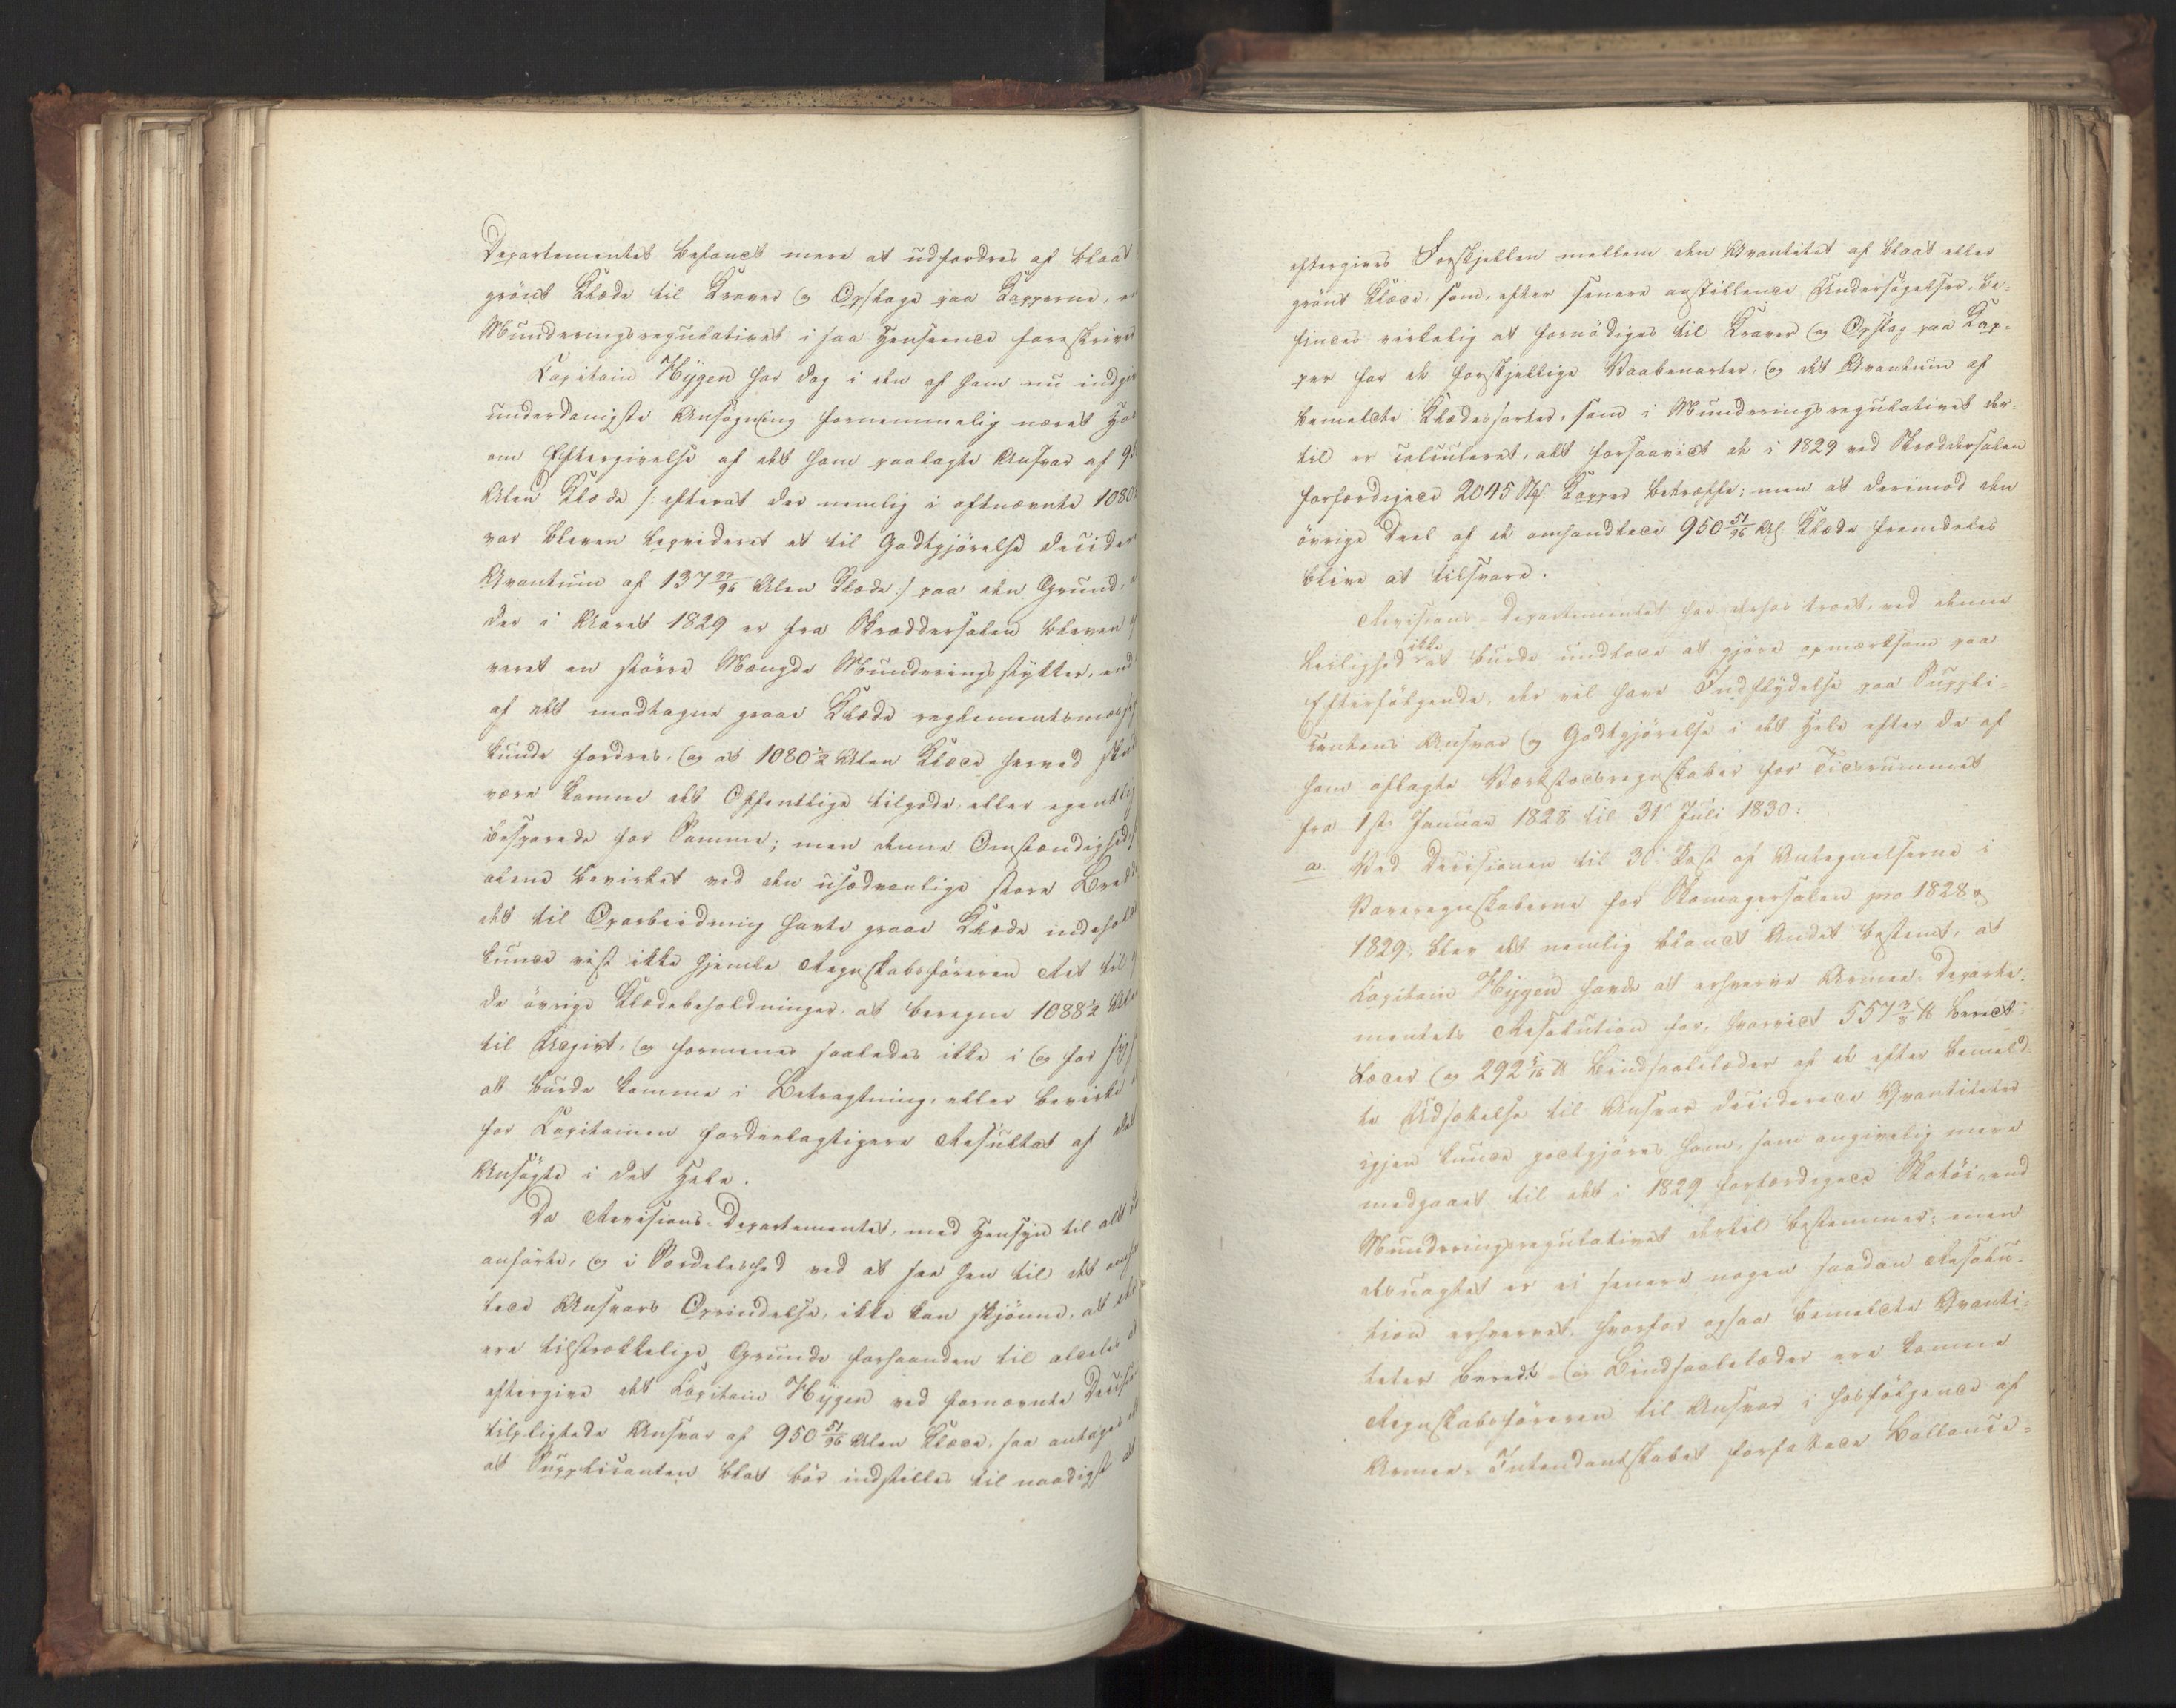 Departementet befandt mere at udfordres af blaat
grönt Klæde til Kraver og Opslage paa Kapperne, en
Munderingsregulativet i saa Henseende foreskriver
Capitain Hÿgen har dog i den af ham nu indgiv
underdanigste Ansøgning fornemmelig næret Haa
om Eftergivelse af det ham paalagte Ansvar af 95
Alen Klæde /: efterat der nemlig i oftnævnte 1080
var bleven liqvideret et til Godtgjörelse decider
Qvantum af 137 Alen Klæde :/ paa den Grund,
der i Aaret 1829 er fra Skræddersalen bleven
veret en större Mængde Munderingsstykker, end
af det modtagne graae Klæde reglementsmæss
kunde fordres, og at 1080½ Alen Klæde herved sk
være komne det Offentlige tilgode, eller egentlig
besparede for Samme; men denne Omstændighed,
alene bevirket ved den usædvanlige store Bred
det til Oparbeidning havte graae Klæde indeho
kunde vist ikke hjemle Regnskabsföreren Ret til
de övrige Klædebeholdninger, at beregne 1088½ Al
til Udgivt, og formenes saaledes ikke i og for sig
at burde komme i Betragtning, eller bevirke
for Capitainen fordeelagtigere Resultat af det
Ansögte i det Hele.
Da Revisions-Departementet, med Hensyn til alt
anförte, og i Særdeleshed ved at see hen til det omh
lede Ansvars Oprindelse, ikke kan skjönne, at de
ere tilstrækkelige Grunde forhaanden til aldeles
eftergive det Capitain Hÿgen ved fornævnte Decisi
tilpligtede Ansvar af 950 51/96 Alen Klæde, saa antages
at Supplicanten blot bör indstilles til naadigst
eftergives Forskjellen mellem den Qvantitet af blaat eller
grönt Klæde, som, efter senere anstillende Undersögelser, be-
findes virkelig at fornödiges til Kraver og Opslag paa Kap-
per for de forskjellige Vaabenarter, og det Qvantum af
bemeldte Klædessorter, som i Munderingsregulativet der-
til er calculeret, alt forsaavidt de i 1829 ved Skræddersalen
forfærdigede 2045 Stk. Kapper betræffe; men at derimod den
övrige Deel af de omhandlede 950 51/96 Al. Klæde fremdeles
blive at tilsvare.
Revisions-Departementet har derhos troet, ved denne
Leilighed ikke at burde undlade at gjöre opmærksom paa
Efterfölgende, der vil have Indflydelse paa Suppli-
cantens Ansvar og Godtgjörelse i det Hele efter de af
ham aflagte Værkstedsregnskaber for Tidsrummet
fra 1ste Januar 1828 til 31. Juli 1830:
a. Ved Decisionen til 30. Post af Antegnelserne i
Vareregnskaberne for Skomagersalen pro 1828 &
1829, blev det nemlig blandt Andet bestemt, at
Capitain Hÿgen havde at erhverve Armee-Departe-
mentets Resolution for, hvorvidt 557 3/8 ℔ beredt-
Læder og 292 5/16 ℔ Bindsaalelæder af de efter bemeld-
te Udsættelse til Ansvar deciderede Qvantiteter
igjen kunde godtgjöres ham, som angivelig mere
medgaaet til det i 1829 forfærdigede Skotöi, end
Munderingsregulativet dertil bestemmer; men
desuagtet er ei senere nogen saadan Resolu-
tion erhvervet, hvorfor ogsaa bemeldte Qvanti-
teter Beredt- og Bindsaalelæder ere komne
Regnskabsföreren til Ansvar i hosfölgende af
Armee-Intendantskabet forfattede Ballance-